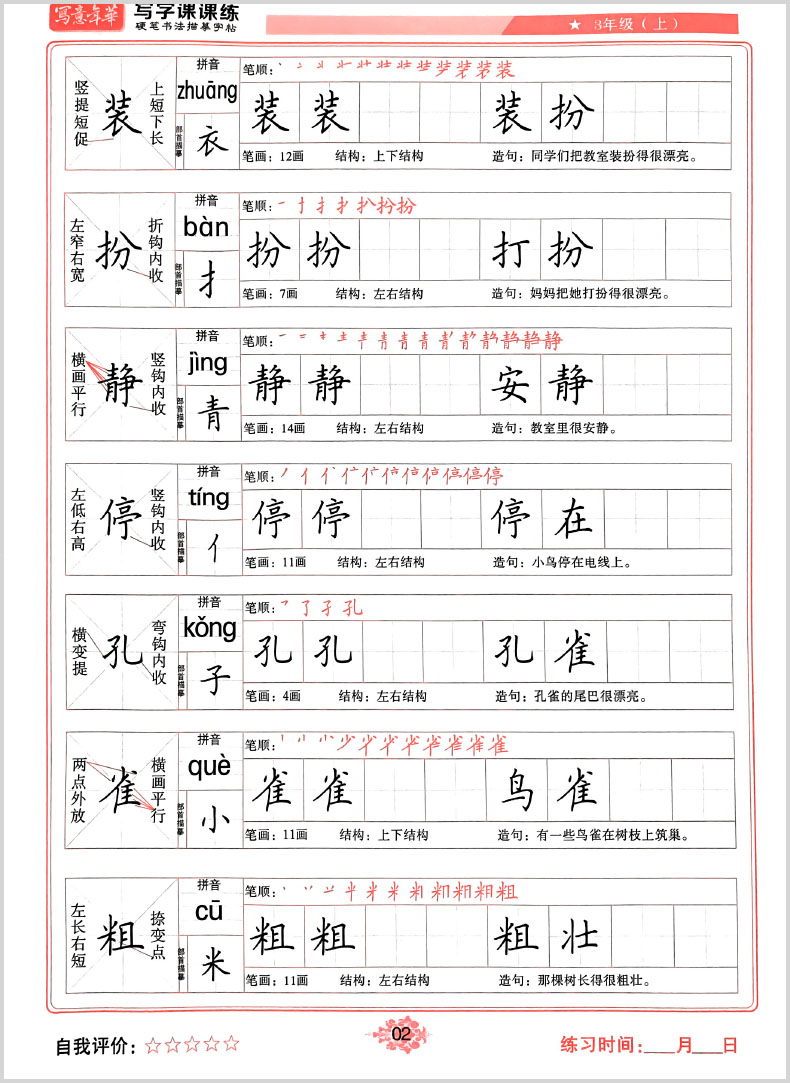 写意年华
写字课课练
硬笔书法描摹字帖
★ 3年级（上）
竖提短促
装
上短下长
拼音
zhuāng
部首描摹
衣
笔顺：
装 装 装 扮
笔画：12画 结构：上下结构 造句：同学们把教室装扮得很漂亮。
左窄右宽
扮
折钩内收
拼音
bàn
部首描摹
扌
笔顺：一 十 扌 扮 扮
扮 扮 打 扮
笔画：7画 结构：左右结构 造句：妈妈把她打扮得很漂亮。
横画平行
静
竖钩内收
拼音
jìng
部首描摹
青
笔顺：
静 静 安 静
笔画：14画 结构：左右结构 造句：教室里很安静。
左低右高
停
竖钩内收
拼音
tíng
部首描摹
亻
笔顺：
停 停 停 在
笔画：11画 结构：左右结构 造句：小鸟停在电线上。
横变提
孔
弯钩内收
拼音
kǒng
部首描摹
子
笔顺：㇇ 了 孑 孔
孔 孔 孔 雀
笔画：4画 结构：左右结构 造句：孔雀的尾巴很漂亮。
两点外放
雀
横画平行
拼音
què
部首描摹
小
笔顺：
雀 雀 鸟 雀
笔画：11画 结构：上下结构 造句：有一些鸟雀在树枝上筑巢。
左长右短
粗
捺变点
拼音
cū
部首描摹
米
笔顺：
粗 粗 粗 壮
笔画：11画 结构：左右结构 造句：那棵树长得很粗壮。
自我评价：☆☆☆☆☆ 02 练习时间：___月___日